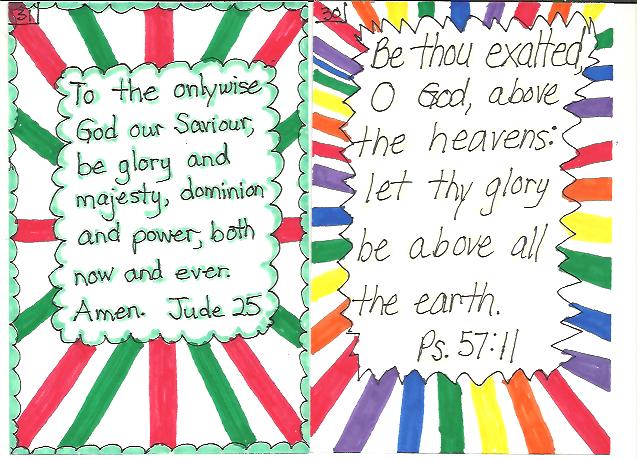 31
To the onlywise
God our Saviour,
be glory and
majesty, dominion
and power, both
now and ever.
Amen. Jude 25
30
Be thou exalted,
O God, above
the heavens:
let thy glory
be above all
the earth.
Ps. 57:11